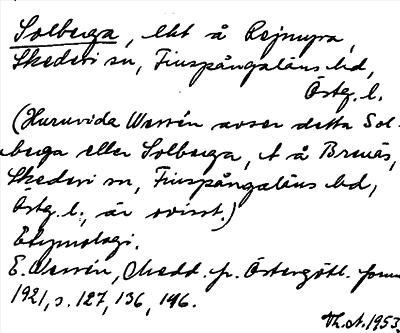 Solberga, lht å Rejmyra,
Skedevi sn, Finspångaläns hd,
Östg. l.
(Huruvida Wessén avser detta Sol-
berga eller Solberga, t å Brenäs,
Skedevi sn, Finspångaläns hd,
Östg. l., är ovisst.)
Etymologi.
E. Wessén, Medd. fr. Östergötl. fornm
1921, s. 127, 136, 146.
Th. A. 1953.